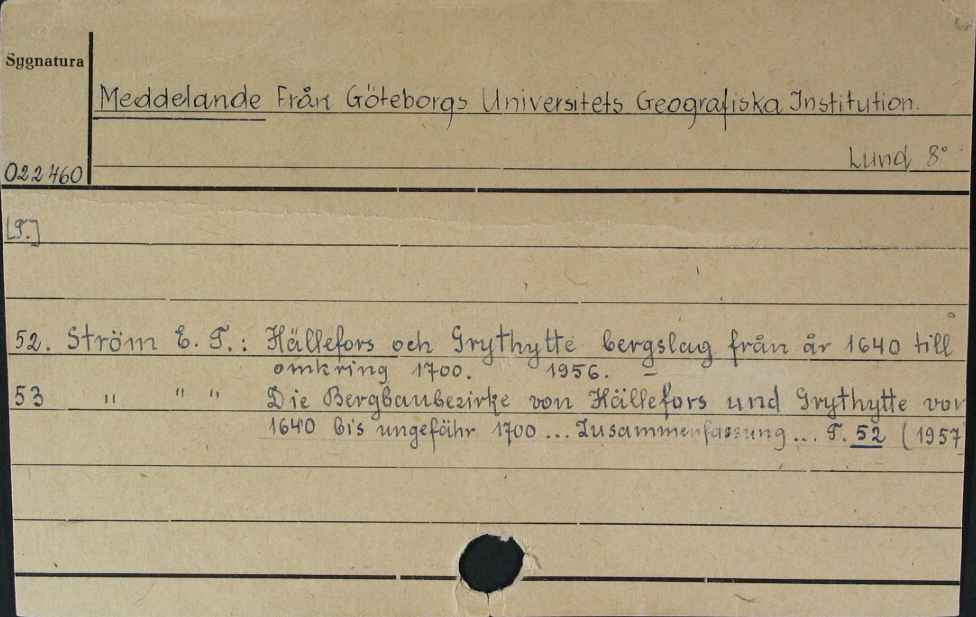 Sygnatura
Meddelande Från Göteborgs Universitets Geografiska Institution.
Lund 8°
022460
[T.]
52. Ström E. T.: Hällefors och Grythytte bergslag från år 1640 till
omkring 1700. 1956. –
53 " " " Die Bergbaubezirke von Hällefors und Grythytte von
1640 bis ungefähr 1700 ... Zusammenfassung ... T. 52 (1957